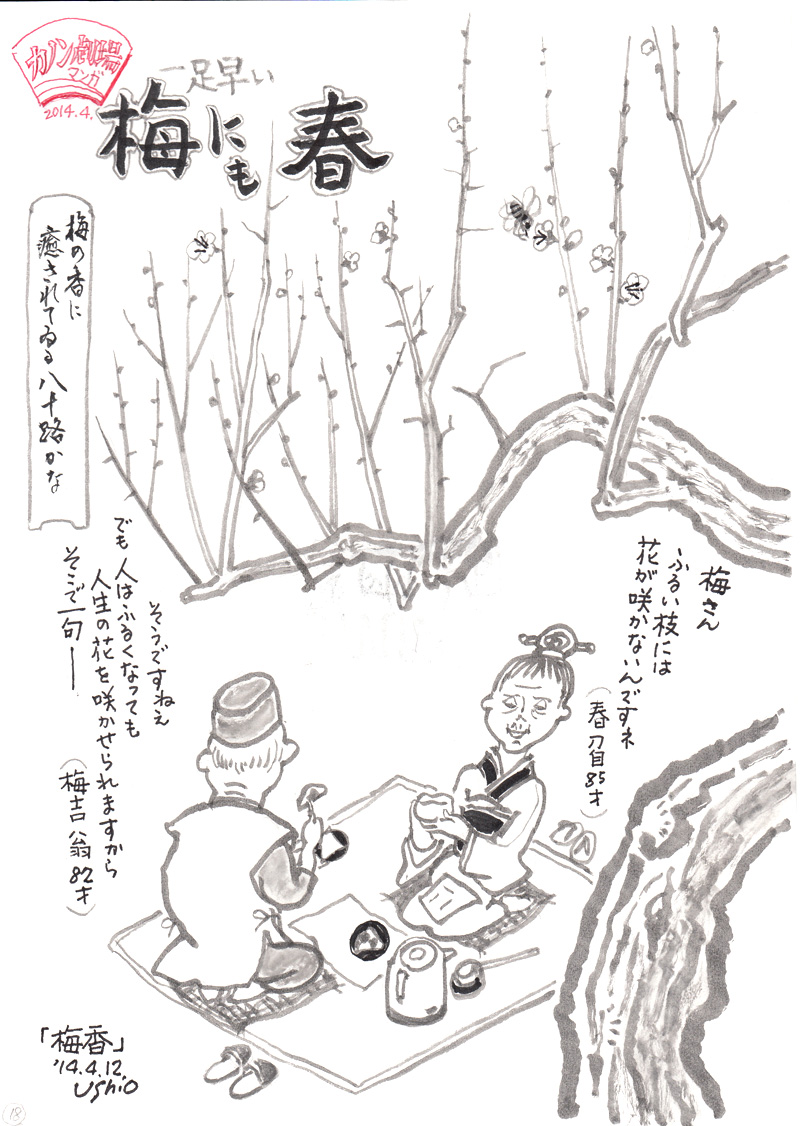 カノン劇場
マンガ
2014.4.
一足早い
梅にも春
梅の香に
癒されてゐる八十路かな
梅さん
ふるい枝には
花が咲かないんですネ
（春刀自85才）
そうですねえ
でも人はふるくなっても
人生の花を咲かせられますから
そこで一句―
（梅吉翁82才）
「梅香」
'14.4.12
Ushio
18